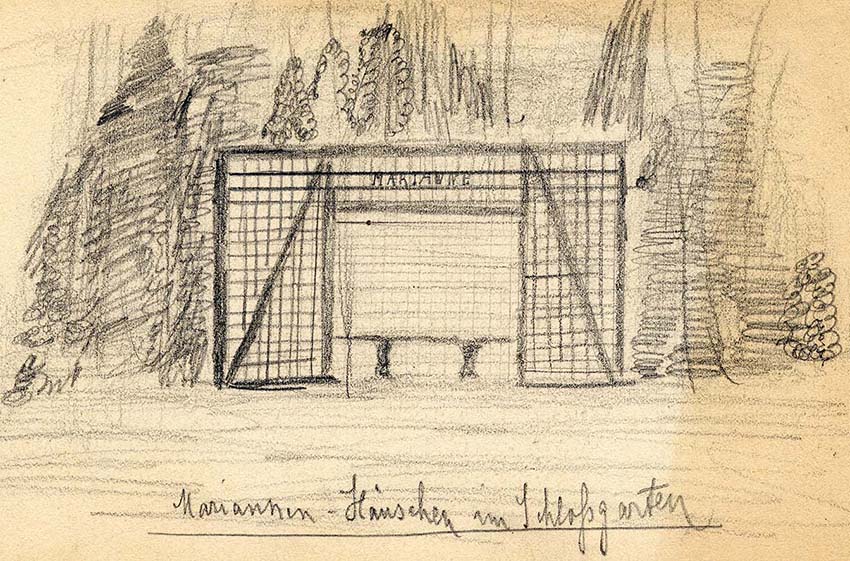 MARIANNE
Mariannen-Häuschen im Schloßgarten